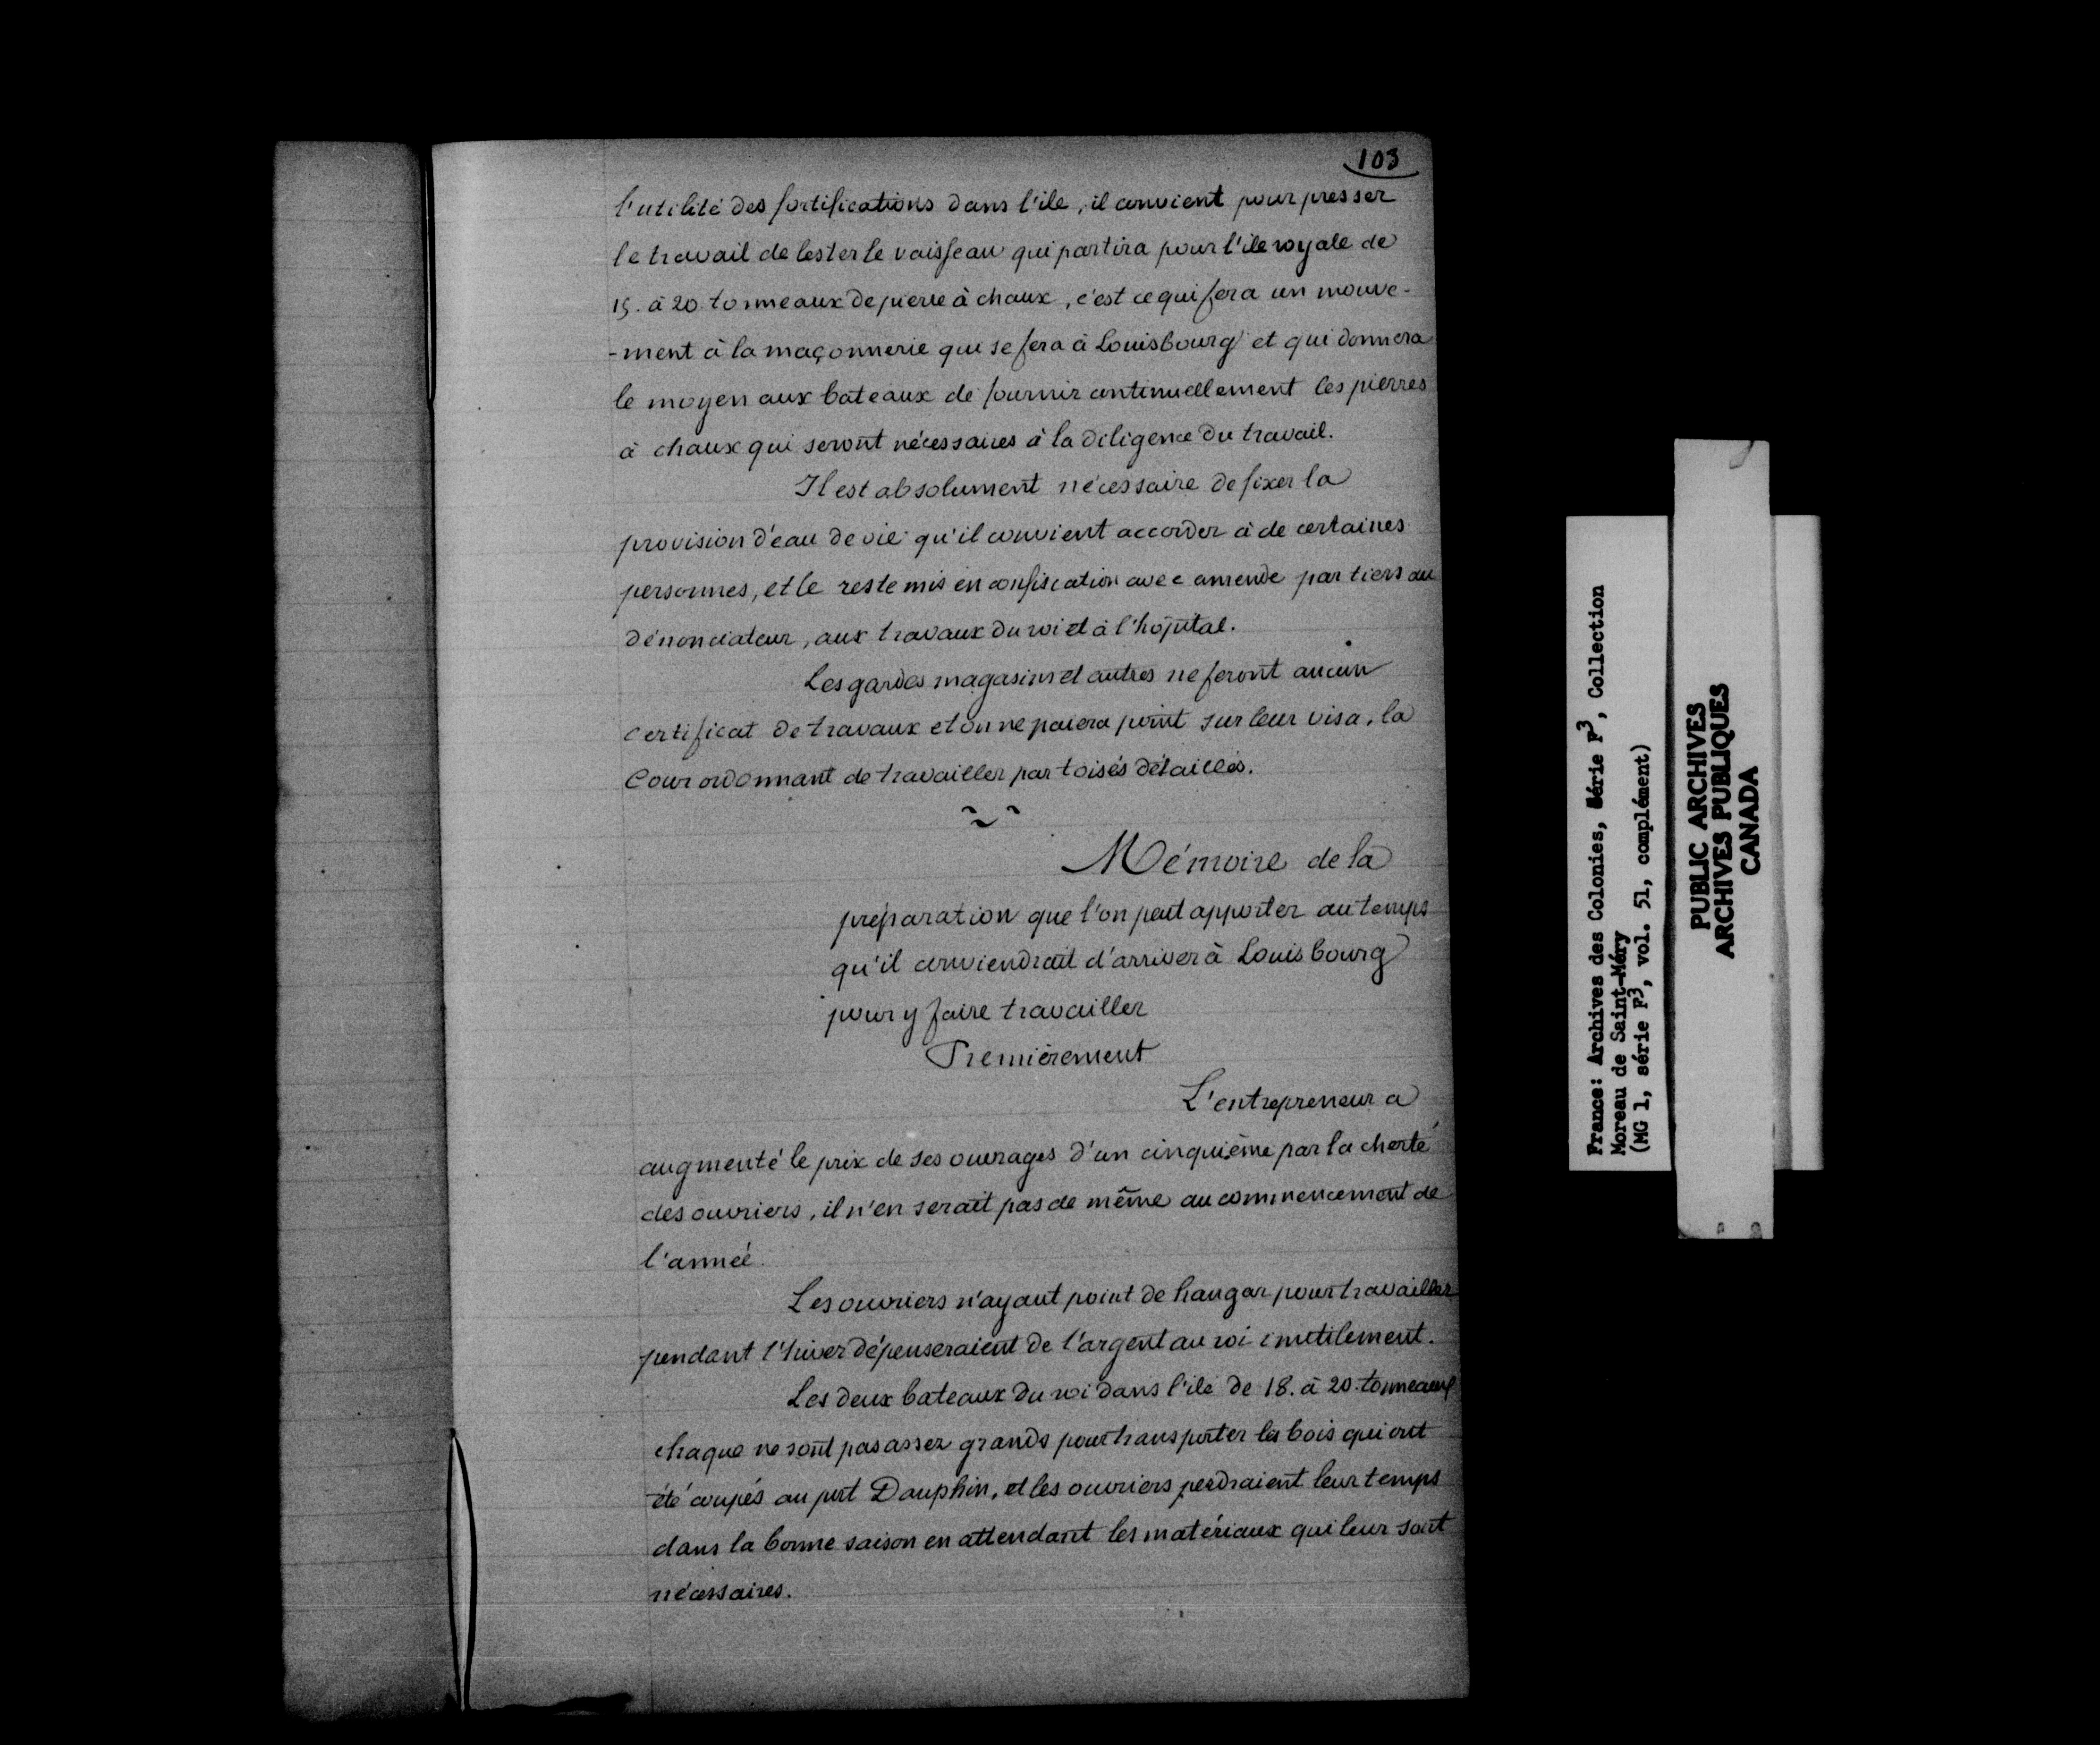 103
l'utilité des fortifications dans l'ile, il convient pour presser
le travail de lester le vaisseau qui partira pour l'ile royale de
15. à 20 tonneaux de pierre à chaux, c'est ce qui fera un mouve-
-ment à la maçonnerie qui se fera à Louisbourg et qui donnera
le moyen aux bateaux de fournir continuellement les pierres
à chaux qui seront nécessaires à la diligence du travail.
Il est absolument nécessaire de fixer la
provision d'eau de vie qu'il convient accorder à de certaines
personnes, et le reste mis en confiscation avec amende par tiers au
dénonciateur, aux travaux du roi et à l'hôpital.
Les gardes magasins et autres ne feront aucun
certificat de travaux et on ne paiera point sur leur visa, la
Cour ordonnant de travailler par toisés détaillés.
Mémoire de la
préparation que l'on peut apporter au temps
qu'il conviendrait d'arriver à Louisbourg
pour y faire travailler
Premièrement
L'entrepreneur a
augmenté le prix de ses ouvrages d'un cinquième par la cherté
des ouvriers, il n'en serait pas de même au commencement de
l'année.
Les ouvriers n'ayant point de hangar pour travailler
pendant l'hiver dépenseraient de l'argent au roi inutilement.
Les deux bateaux du roi dans l'ile de 18. à 20. tonneaux
chaque ne sont pas assez grands pour transporter les bois qui ont
été coupés au port Dauphin, et les ouvriers perdraient leur temps
dans la bonne saison en attendant les matériaux qui leur sont
nécessaires.
France: Archives des Colonies, Série F3, Collection
Moreau de Saint-Méry
(MG 1, série F3, vol. 51, complément)
PUBLIC ARCHIVES
ARCHIVES PUBLIQUES
CANADA